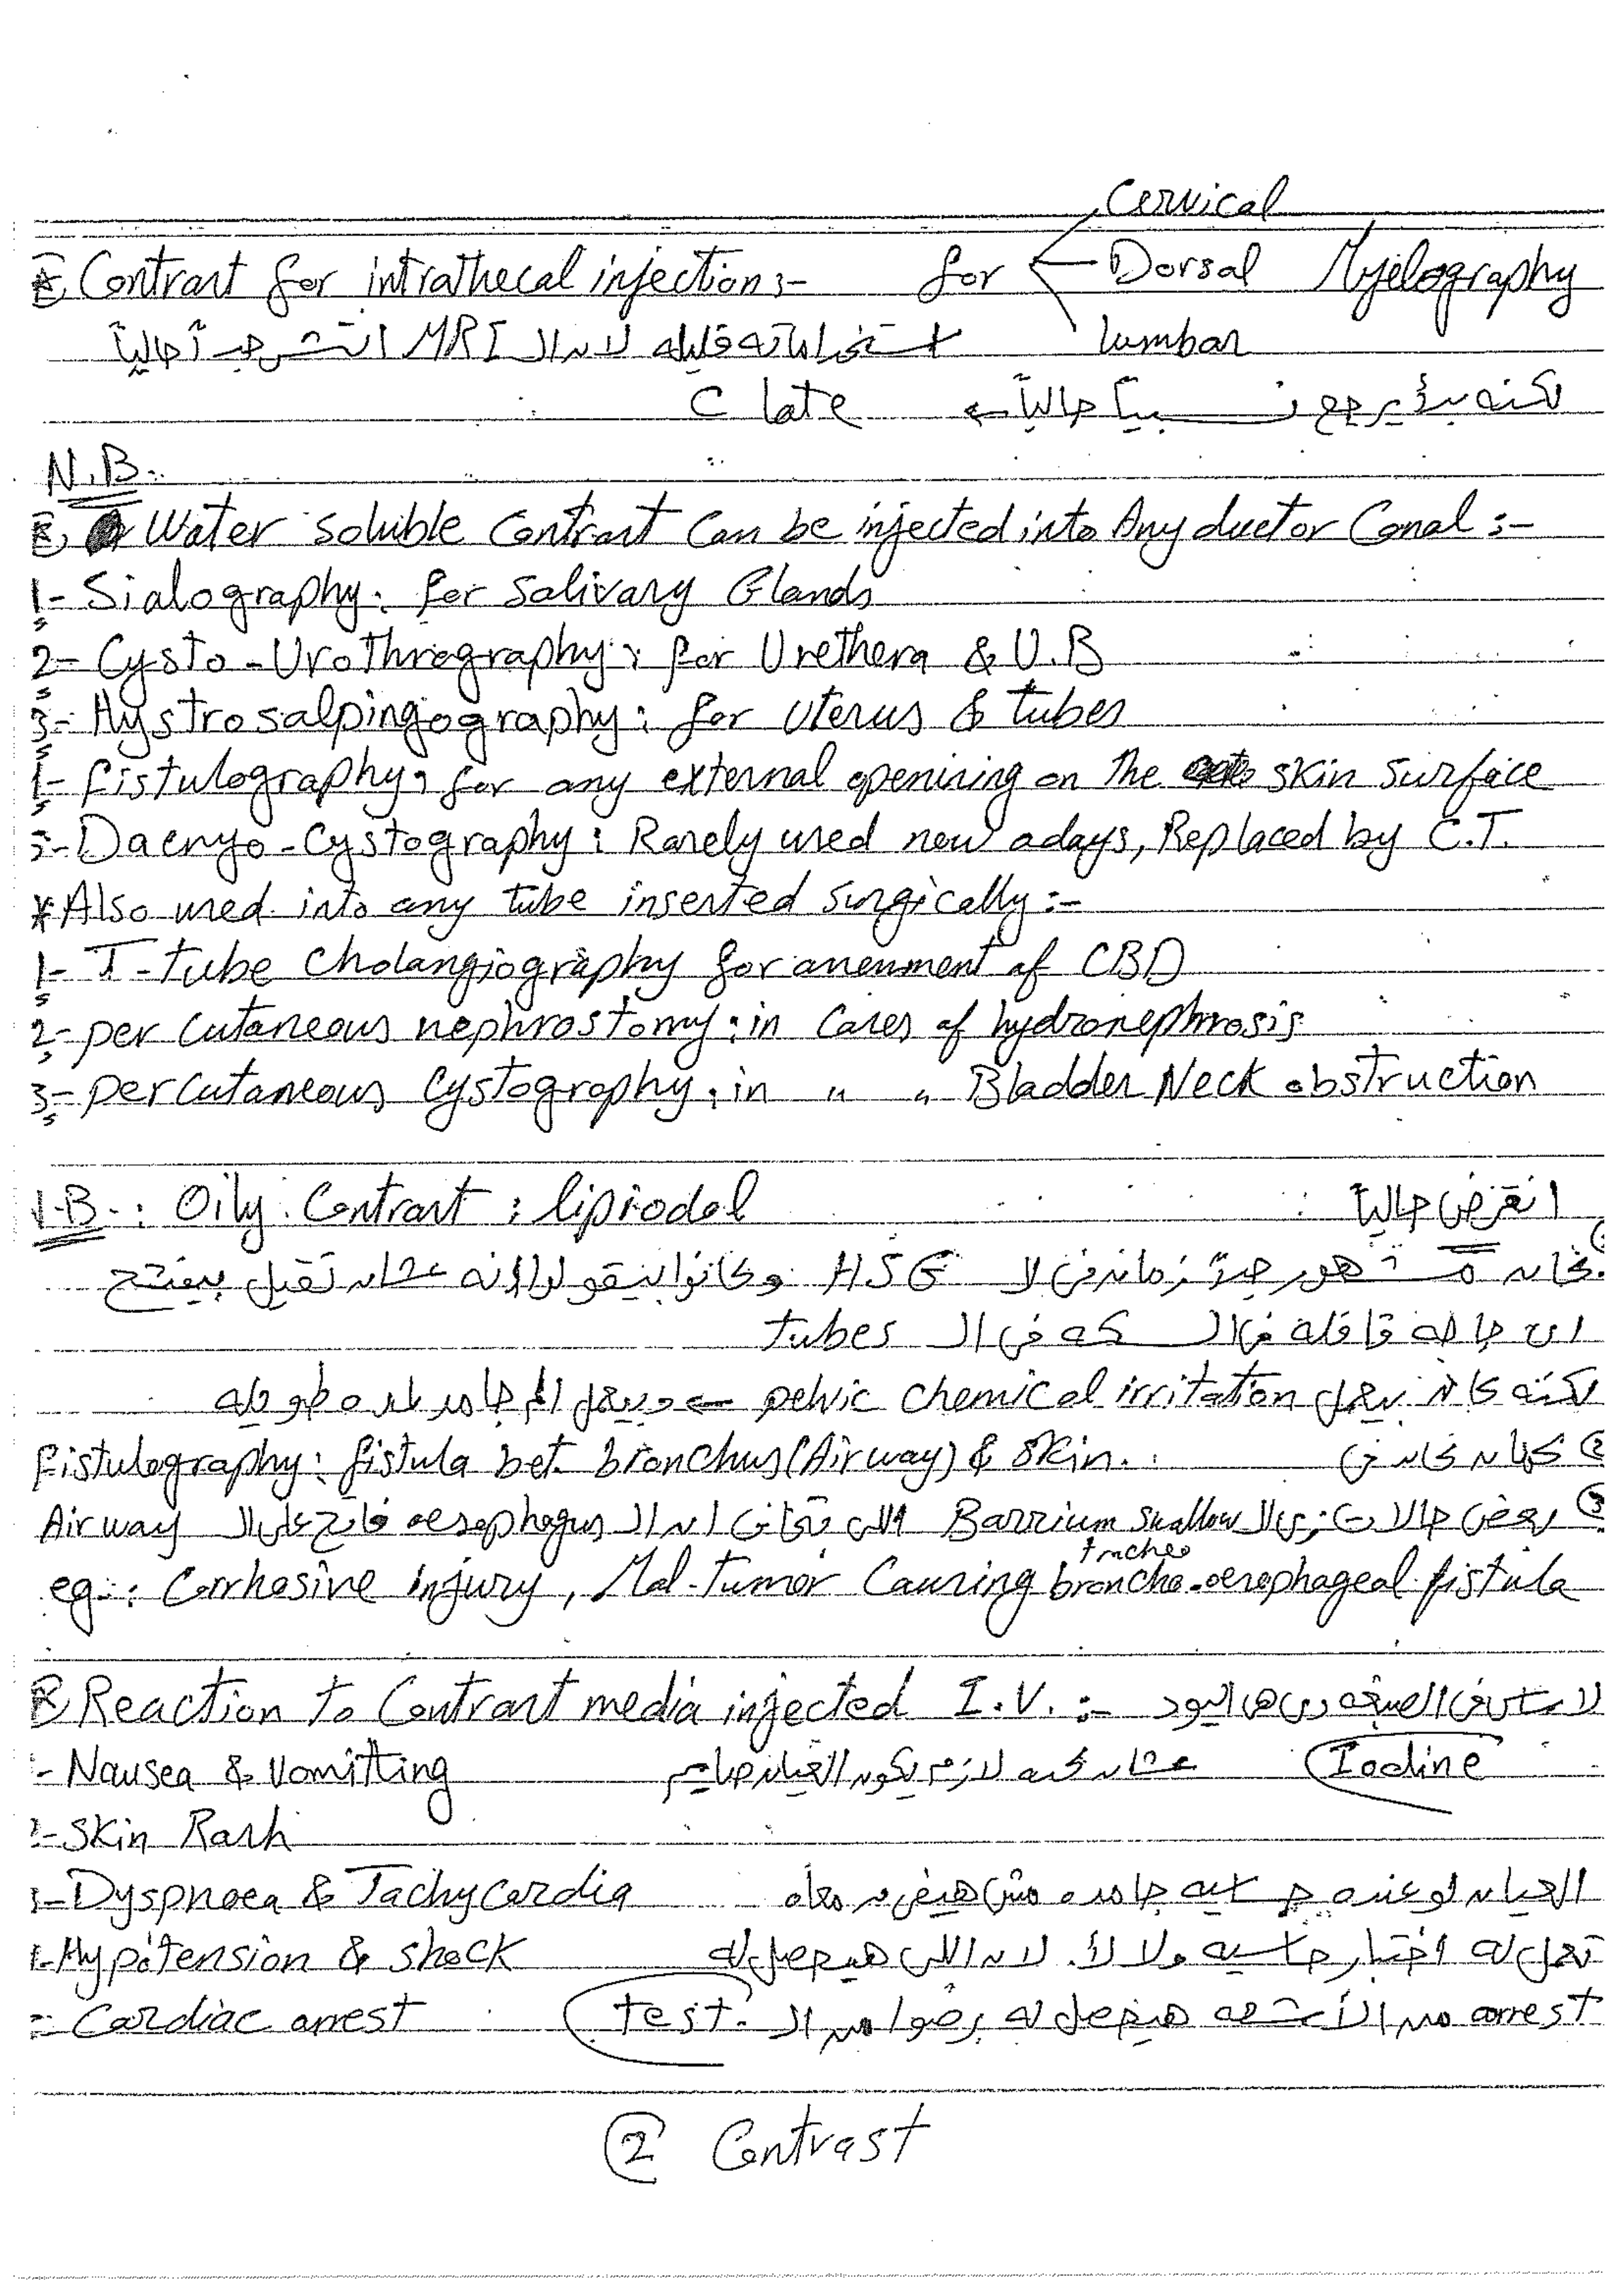 Cervical
Contrast for intrathecal injection:- for Dorsal Myelography
lumbar
استخداماته قليله لان ال MRI انتشر جداً حالياً
لكنه بدأ يرجع نسبياً حالياً ← C late
N.B.
Water soluble Contrast Can be injected into Any duct or Canal :-
1- Sialography: for Salivary Glands
2- Cysto-Urothrography: for Urethera & U.B
3- Hystrosalpingography: for Uterus & tubes
fistulography: for any external openining on The skin surface
Dacryo-Cystography: Rarely used now adays, Replaced by C.T.
* Also used into any tube inserted surgically:-
1- T-tube Cholangiography for assessment of CBD
2- per cutaneous nephrostomy: in Cases of hydronephrosis
3- percutaneous Cystography: in " " Bladder Neck obstruction
N.B.: Oily Contrast: lipiodol انقرض حالياً
كان مشهور جداً زمان في ال HSG وكانوا بيقولوا انه عشان تقيل بيفتح
اى حاجه قافلة في السكه في ال tubes
لكنه كان بيعمل pelvic chemical irritation ← وبيعمل الم جامد لمده طويله
② كمان كان في fistulography: fistula bet. bronchus (Airway) & skin.
③ بعض حالات زي ال Barrium swallow اللي بخاف ان ال oesophagus فاتح على ال Airway
eg.: Corrhosive injury, Mal-Tumor Causing broncho-oesophageal fistula
tracheo
Reaction to Contrast media injected I.V. :- لا الصبغه دى هى اليود
Nausea & Vomitting عشان كده لازم يكون العيان صايم Iodine
Skin Rash
Dyspnoea & Tachycardia العيان لو عنده حساسيه جامده مش هيفرق معاه
Hypotension & shock تعمل له اختبار حساسيه ولا لأ. لان اللى هيحصل له
Cardiac arrest arrest من الأشعه هيحصل له برضوا من ال test.
② Contrast